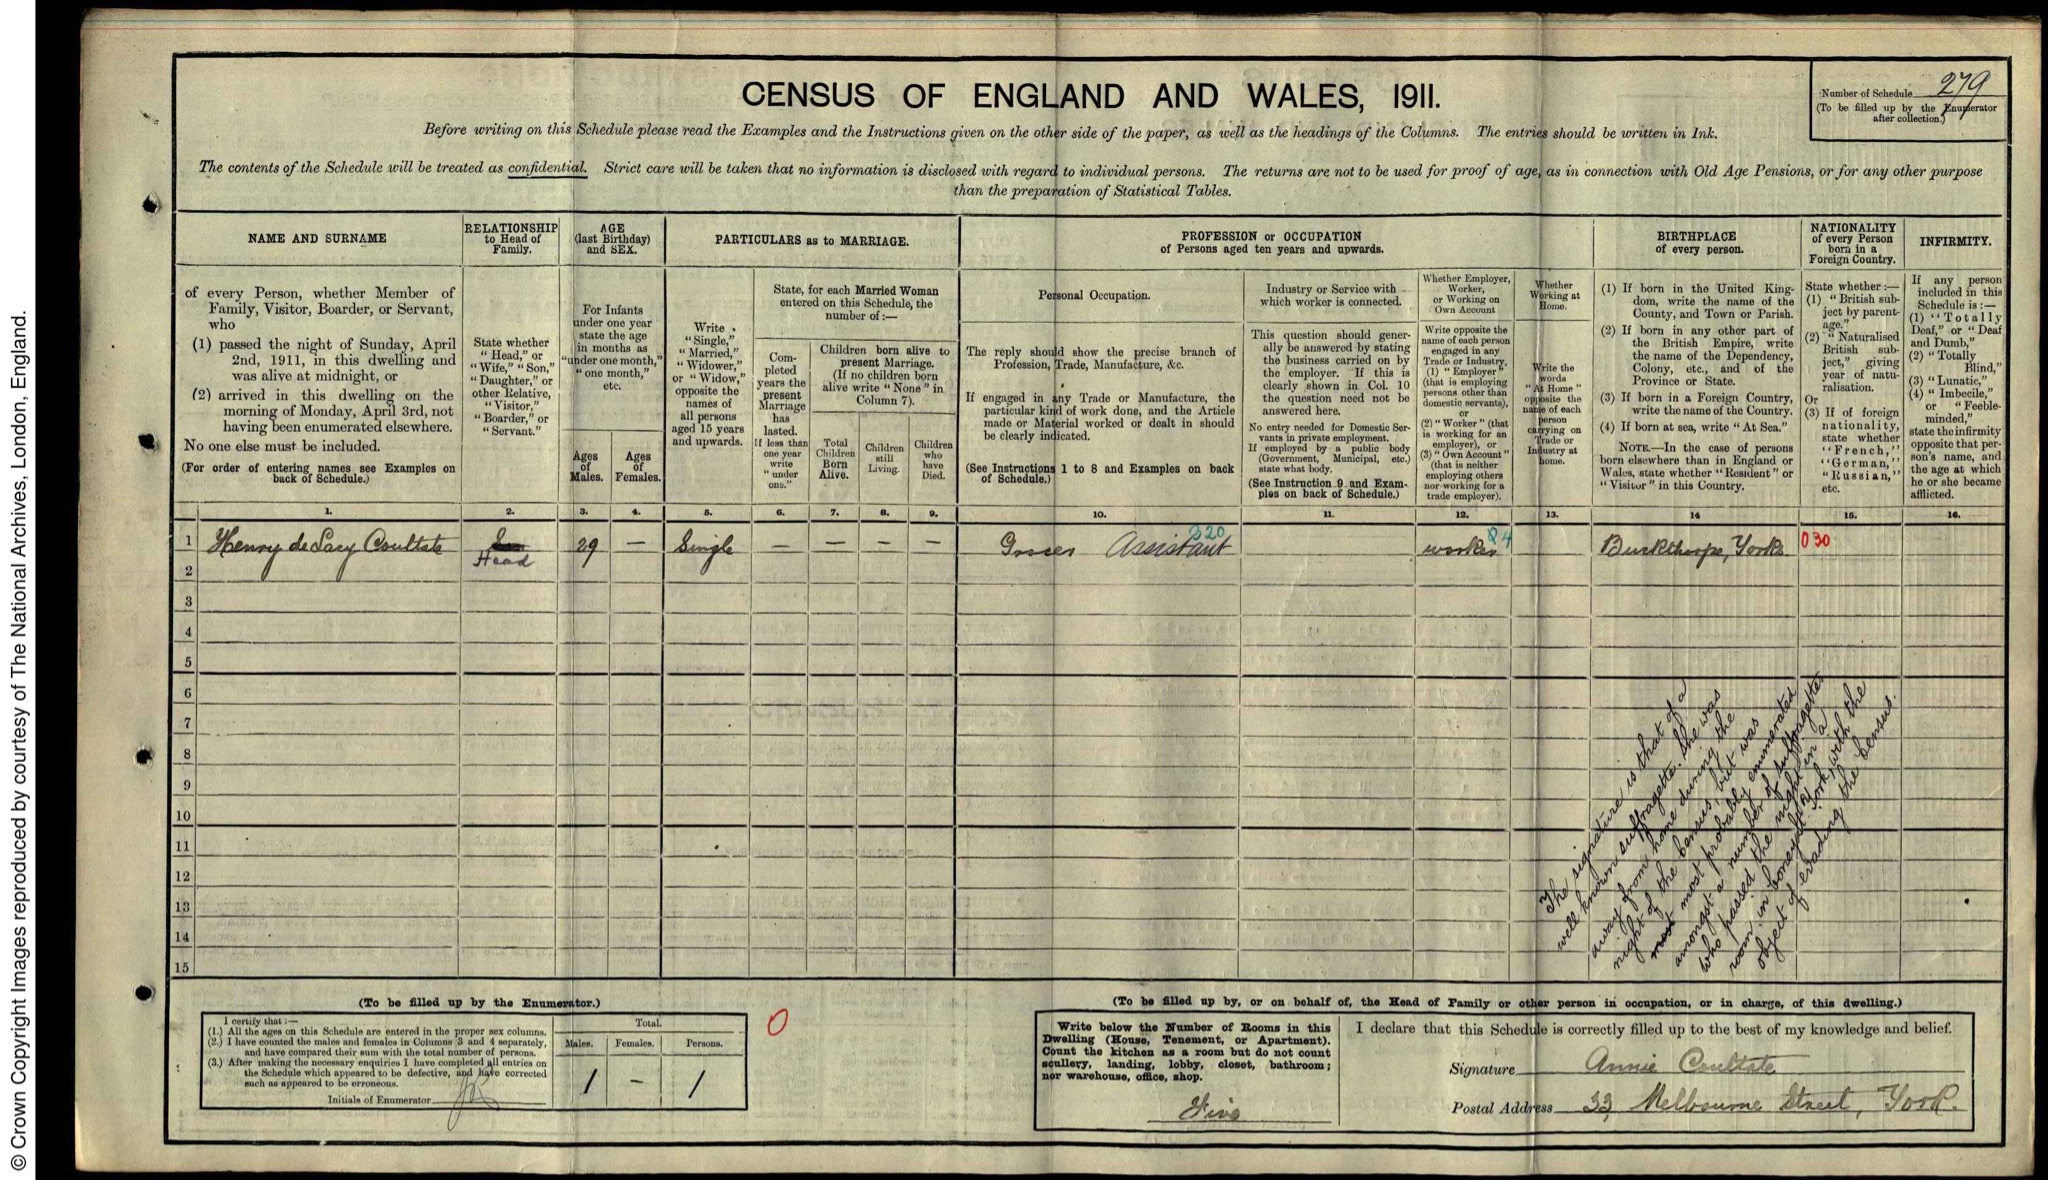 © Crown Copyright Images reproduced by courtesy of The National Archives, London, England.
CENSUS OF ENGLAND AND WALES, 1911.
Number of Schedule 279
(To be filled up by the Enumerator
after collection.)
Before writing on this Schedule please read the Examples and the Instructions given on the other side of the paper, as well as the headings of the Columns. The entries should be written in Ink.
The contents of the Schedule will be treated as confidential. Strict care will be taken that no information is disclosed with regard to individual persons. The returns are not to be used for proof of age, as in connection with Old Age Pensions, or for any other purpose
than the preparation of Statistical Tables.
NAME AND SURNAME
of every Person, whether Member of
Family, Visitor, Boarder, or Servant,
who
(1) passed the night of Sunday, April
2nd, 1911, in this dwelling and
was alive at midnight, or
(2) arrived in this dwelling on the
morning of Monday, April 3rd, not
having been enumerated elsewhere.
No one else must be included.
(For order of entering names see Examples on
back of Schedule.)
RELATIONSHIP
to Head of
Family.
State whether
"Head," or
"Wife," "Son,"
"Daughter," or
other Relative,
"Visitor,"
"Boarder," or
"Servant."
AGE
(last Birthday)
and SEX.
For Infants
under one year
state the age
in months as
"under one month,"
"one month,"
etc.
Ages
of
Males.
Ages
of
Females.
PARTICULARS as to MARRIAGE.
Write
"Single,"
"Married,"
"Widower,"
or "Widow,"
opposite the
names of
all persons
aged 15 years
and upwards.
State, for each Married Woman
entered on this Schedule, the
number of:—
Com-
pleted
years the
present
Marriage
has
lasted.
If less than
one year
write
"under
one."
Children born alive to
present Marriage.
(If no children born
alive write "None" in
Column 7).
Total
Children
Born
Alive.
Children
still
Living.
Children
who
have
Died.
PROFESSION or OCCUPATION
of Persons aged ten years and upwards.
Personal Occupation.
The reply should show the precise branch of
Profession, Trade, Manufacture, &c.
If engaged in any Trade or Manufacture, the
particular kind of work done, and the Article
made or Material worked or dealt in should
be clearly indicated.
(See Instructions 1 to 8 and Examples on back
of Schedule.)
Industry or Service with
which worker is connected.
This question should gener-
ally be answered by stating
the business carried on by
the employer. If this is
clearly shown in Col. 10
the question need not be
answered here.
No entry needed for Domestic Ser-
vants in private employment.
If employed by a public body
(Government, Municipal, etc.)
state what body.
(See Instruction 9 and Exam-
ples on back of Schedule.)
Whether Employer,
Worker,
or Working on
Own Account
Write opposite the
name of each person
engaged in any
Trade or Industry,
(1) "Employer"
(that is employing
persons other than
domestic servants),
or
(2) "Worker" (that
is working for an
employer), or
(3) "Own Account"
(that is neither
employing others
nor working for a
trade employer).
Whether
Working at
Home.
Write the
words
"At Home"
opposite the
name of each
person
carrying on
Trade or
Industry at
home.
BIRTHPLACE
of every person.
(1) If born in the United King-
dom, write the name of the
County, and Town or Parish.
(2) If born in any other part of
the British Empire, write
the name of the Dependency,
Colony, etc., and of the
Province or State.
(3) If born in a Foreign Country,
write the name of the Country.
(4) If born at sea, write "At Sea."
NOTE.—In the case of persons
born elsewhere than in England or
Wales, state whether "Resident" or
"Visitor" in this Country.
NATIONALITY
of every Person
born in a
Foreign Country.
State whether:—
(1) "British sub-
ject by parent-
age."
(2) "Naturalised
British sub-
ject," giving
year of natu-
ralisation.
Or
(3) If of foreign
nationality,
state whether
"French,"
"German,"
"Russian,"
etc.
INFIRMITY.
If any person
included in this
Schedule is:—
(1) "Totally
Deaf," or "Deaf
and Dumb,"
(2) "Totally
Blind,"
(3) "Lunatic,"
(4) "Imbecile,"
or "Feeble-
minded,"
state the infirmity
opposite that per-
son's name, and
the age at which
he or she became
afflicted.
1. 2. 3. 4. 5. 6. 7. 8. 9. 10. 11. 12. 13. 14 15. 16.
1 Henry de Lacy Coultate Head 29 — Single — — — — Grocer Assistant 320 worker Buckthorpe, Yorks 030
2
3
4
5
6
7
8
9
10
11
12
13
14
15
The signature is that of a
well known suffragette. She was
away from home during the
night of the census, but was
most most probably enumerated
amongst a number of suffragettes
who passed the night in a
room in Coney St. York, with the
object of evading the census.
(To be filled up by the Enumerator.)
I certify that:—
(1.) All the ages on this Schedule are entered in the proper sex columns.
(2.) I have counted the males and females in Columns 3 and 4 separately,
and have compared their sum with the total number of persons.
(3.) After making the necessary enquiries I have completed all entries on
the Schedule which appeared to be defective, and have corrected
such as appeared to be erroneous.
Initials of Enumerator
Total.
Males. Females. Persons.
1 – 1
0
(To be filled up by, or on behalf of, the Head of Family or other person in occupation, or in charge, of this dwelling.)
Write below the Number of Rooms in this
Dwelling (House, Tenement, or Apartment).
Count the kitchen as a room but do not count
scullery, landing, lobby, closet, bathroom;
nor warehouse, office, shop.
Five
I declare that this Schedule is correctly filled up to the best of my knowledge and belief.
Signature Annie Coultate
Postal Address 33, Melbourne Street, York.